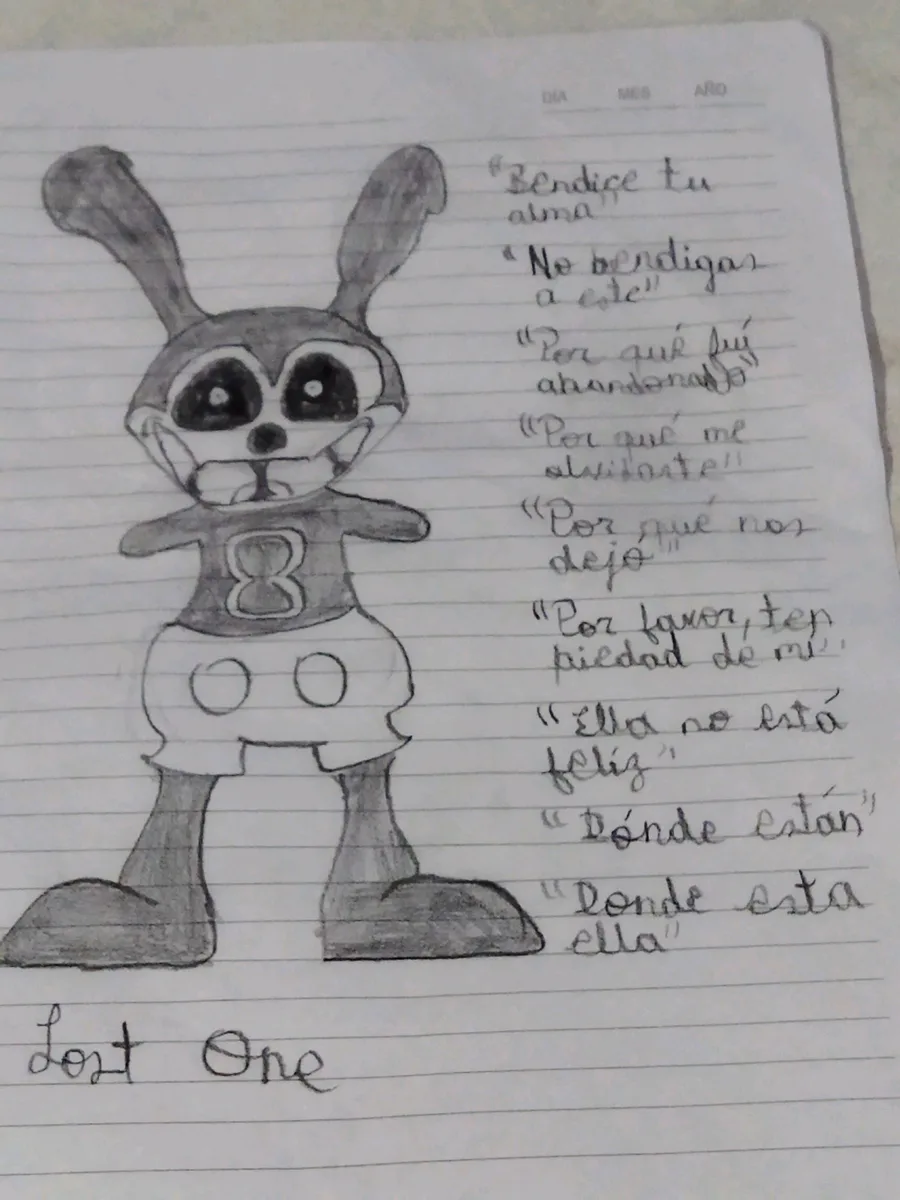 DÍA MES AÑO
"Bendice tu
alma"
"No bendigas
a este"
"Por qué fuí
abandonado"
"Por qué me
olvidaste"
"Por qué nos
dejó"
"Por favor, ten
piedad de mí"
"Ella no está
felíz"
"Dónde están"
"Donde esta
ella"
8
Lost One